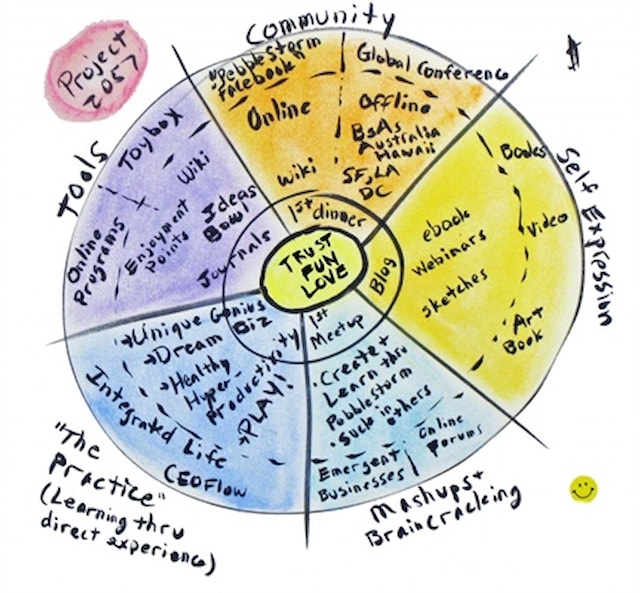 Project
2057
Community
"Pebblestorm
Facebook"
Global Conference
Online
Offline
BsAs
Australia
Hawaii
SF, LA
DC
Wiki
1st dinner
Tools
Toybox
Wiki
Ideas
Bowl
Online
Programs
Enjoyment
Points
Journals
TRUST
FUN
LOVE
Blog
$
Self Expression
Books
ebook
Webinars
Sketches
Video
Art
Book
Unique Genius
Biz
Dream
Healthy
Hyper-
Productivity
PLAY!
Integrated Life
CEOFlow
"The
Practice"
(Learning thru
direct experience)
1st
Meetup
• Create +
Learn thru
Pebblestorm
• Suck in others
Emergent
Businesses
Online
Forums
Mashups +
Braincracking